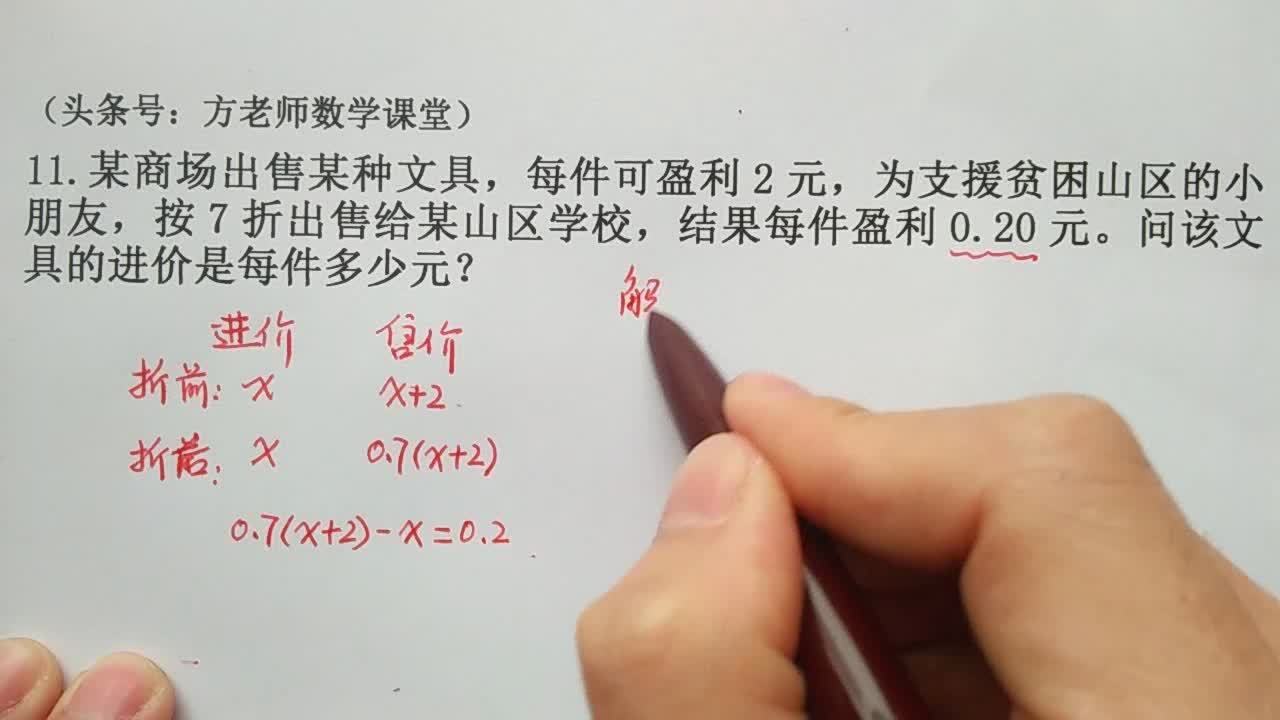 （头条号：方老师数学课堂）
11.某商场出售某种文具，每件可盈利2元，为支援贫困山区的小
朋友，按7折出售给某山区学校，结果每件盈利0.20元。问该文
具的进价是每件多少元？
解
进价 售价
折前：x x+2
折后：x 0.7(x+2)
0.7(x+2)-x=0.2